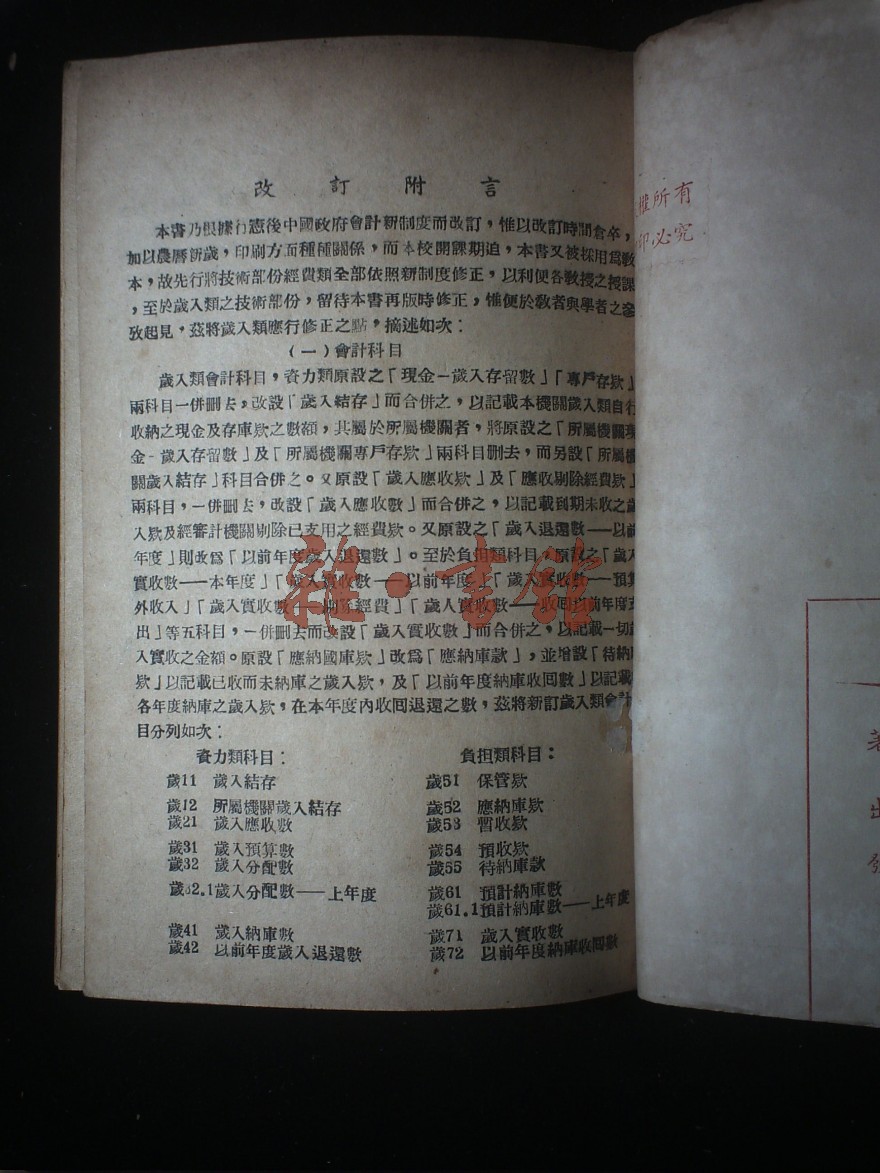 改訂附言
本書乃根據行憲後中國政府會計新制度而改訂，惟以改訂時間倉卒，
加以農曆新歲，印刷方面種種關係，而本校開課期迫，本書又被採用爲敎
本，故先行將技術部份經費類全部依照新制度修正，以利便各敎授之授課
，至於歲入類之技術部份，留待本書再版時修正，惟便於敎者與學者之參
攷起見，茲將歲入類應行修正之點，摘述如次：
（一）會計科目
歲入類會計科目，資力類原設之「現金－歲入存留數」「專戶存欵」
兩科目一併刪去，改設「歲入結存」而合併之，以記載本機關歲入類自行
收納之現金及存庫欵之數額，其屬於所屬機關者，將原設之「所屬機關現
金－歲入存留數」及「所屬機關專戶存欵」兩科目刪去，而另設「所屬機
關歲入結存」科目合併之。又原設「歲入應收欵」及「應收剔除經費欵」
兩科目，一併刪去，改設「歲入應收數」而合併之，以記載到期未收之歲
入欵及經審計機關剔除已支用之經費欵。又原設之「歲入退還數——以前
年度」則改爲「以前年度歲入退還數」。至於負担類科目，原設之「歲入
實收數——本年度」「歲入實收數——以前年度」「歲入實收數——預算
外收入」「歲入實收數——剔除經費」「歲入實收數——收回以前年度支
出」等五科目，一併刪去而改設「歲入實收數」而合併之，以記載一切歲
入實收之金額。原設「應納國庫欵」改爲「應納庫欵」，並增設「待納庫
欵」以記載已收而未納庫之歲入欵，及「以前年度納庫收回數」以記載
各年度納庫之歲入欵，在本年度內收回退還之數，茲將新訂歲入類會計
目分列如次：
資力類科目：
歲11 歲入結存
歲12 所屬機關歲入結存
歲21 歲入應收數
歲31 歲入預算數
歲32 歲入分配數
歲32.1歲入分配數——上年度
歲41 歲入納庫數
歲42 以前年度歲入退還數
負担類科目：
歲51 保管欵
歲52 應納庫欵
歲53 暫收欵
歲54 預收欵
歲55 待納庫欵
歲61 預計納庫數
歲61.1預計納庫數——上年度
歲71 歲入實收數
歲72 以前年度納庫收回數
雜·書館
權所有
印必究
著
出
發